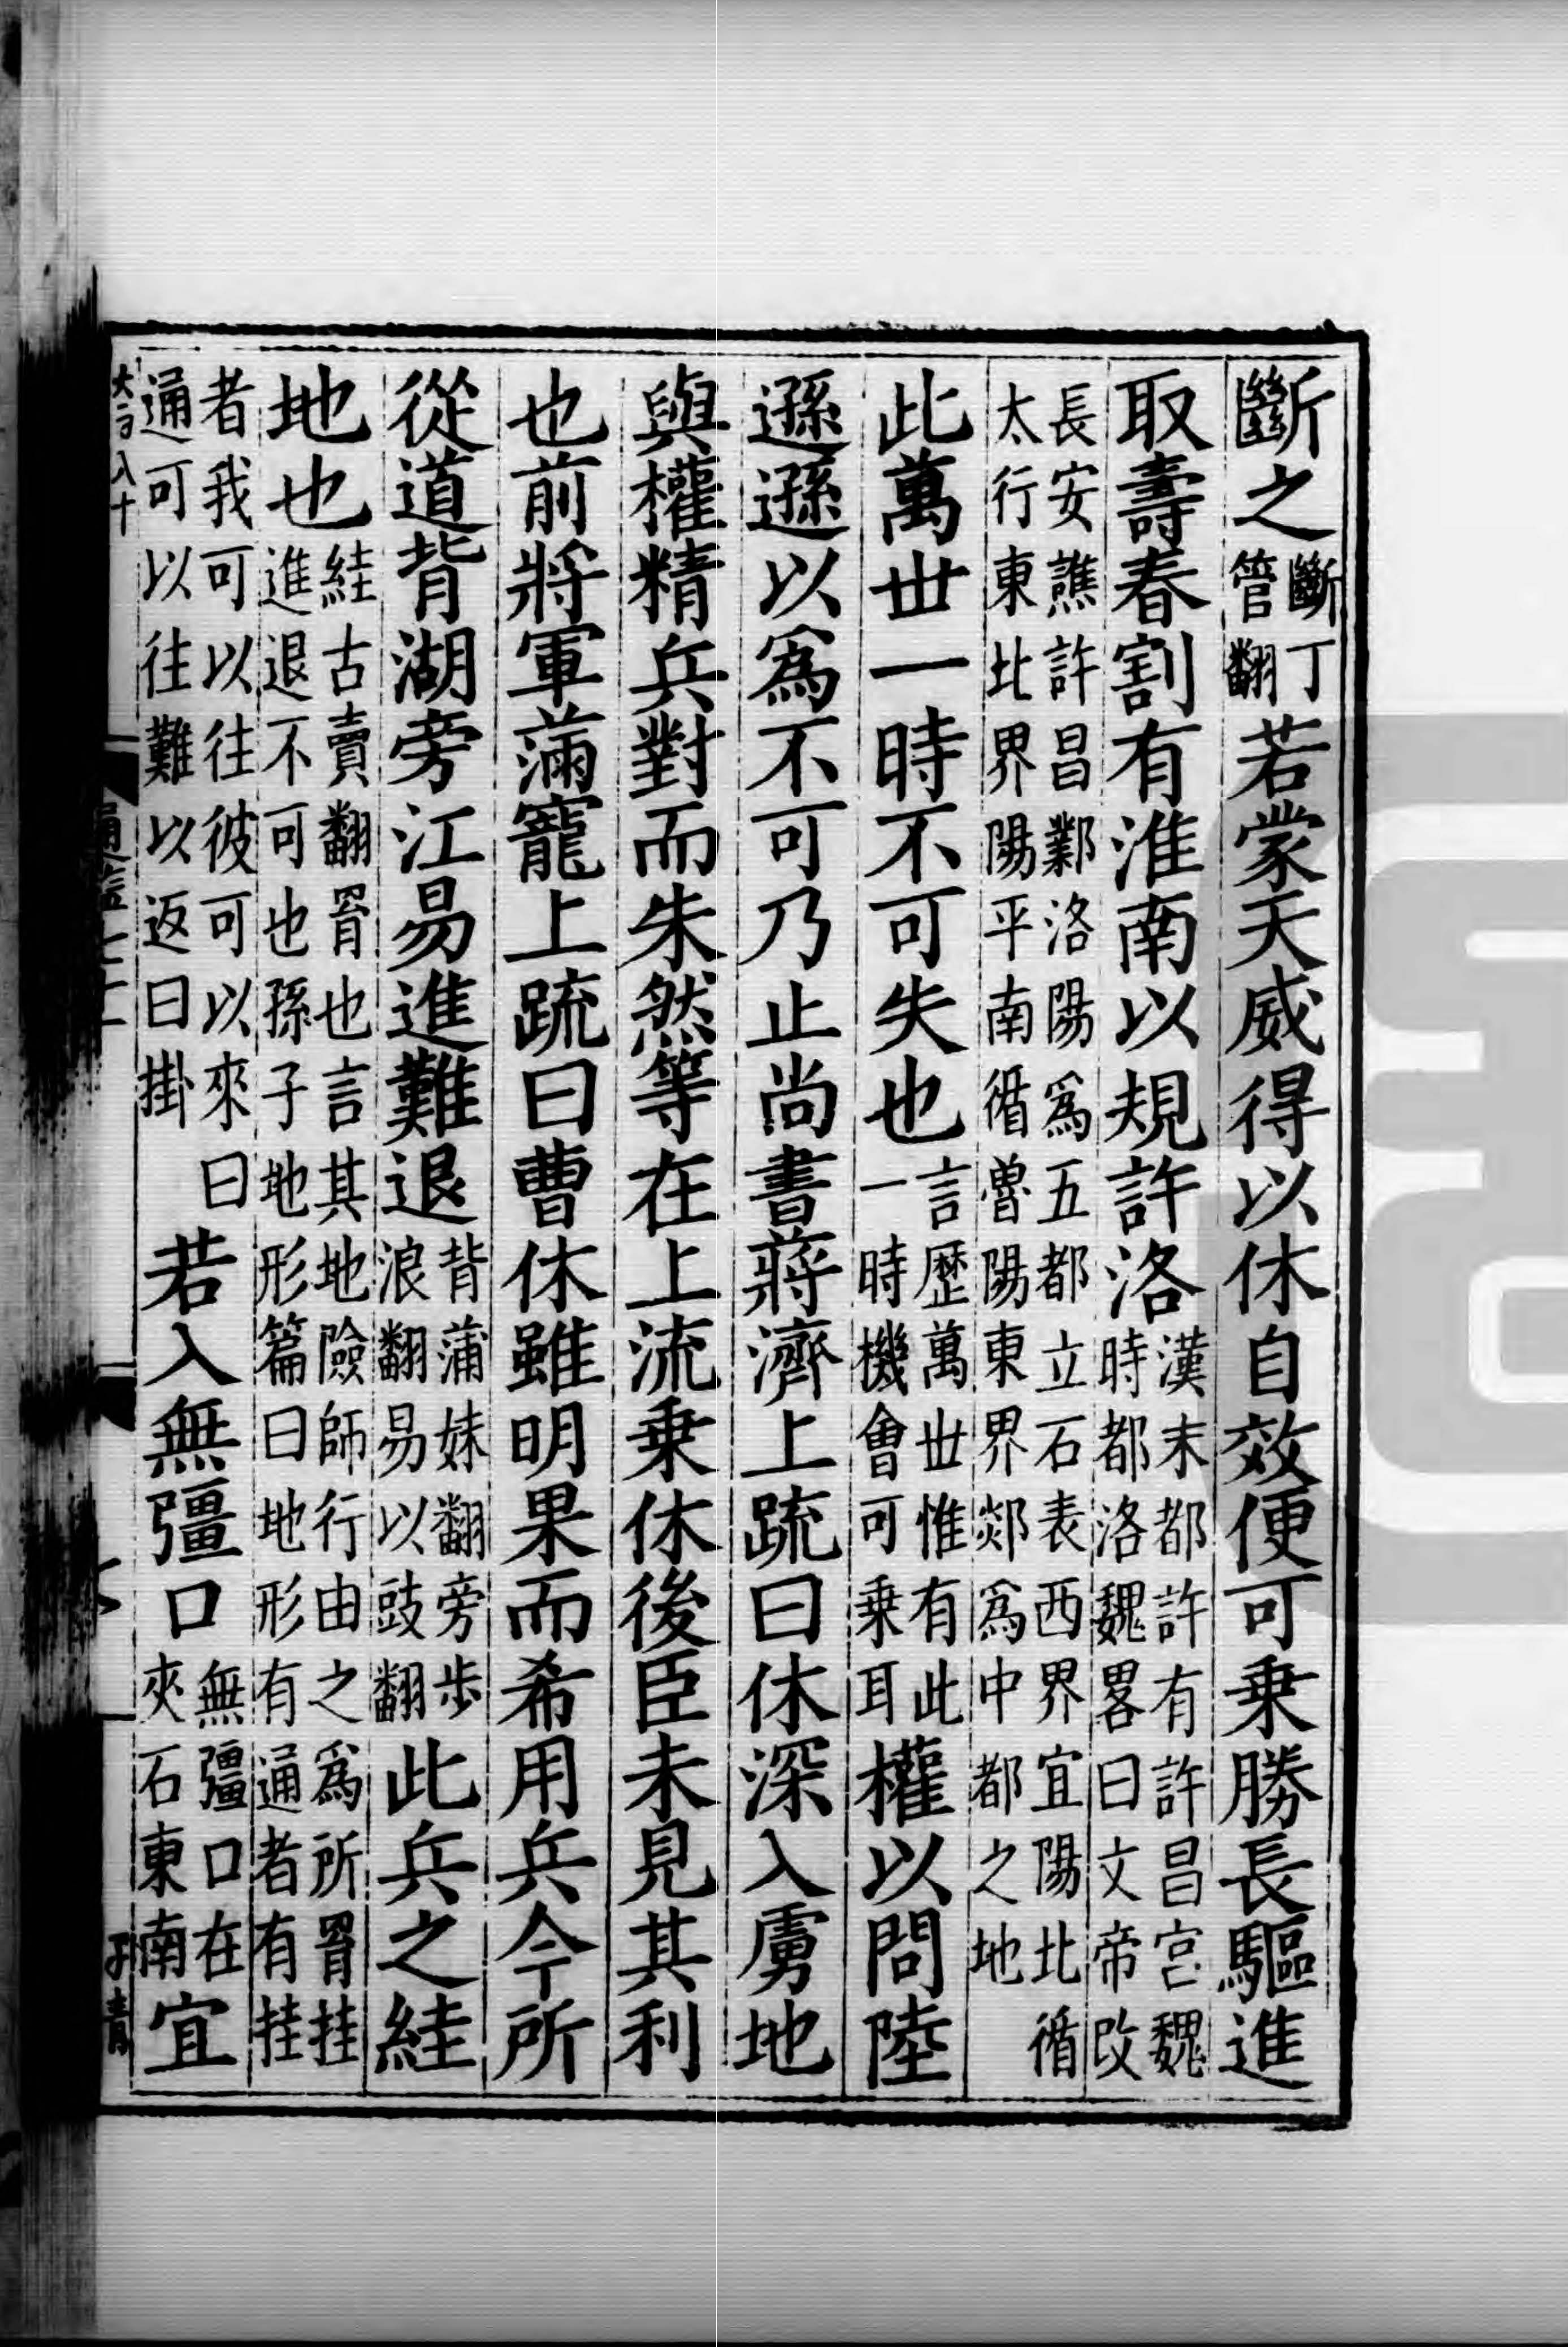 斷之斷丁管翻若蒙天威得以休自效便可乗勝長驅進
取壽春割有淮南以規許洛漢末都許有許昌宫魏時都洛魏畧曰文帝改
長安譙許昌鄴洛陽爲五都立石表西界宜陽北循太行東北界陽平南循魯陽東界郯爲中都之地
此萬丗一時不可失也言歷萬丗惟有此一時機會可乗耳權以問陸
遜遜以爲不可乃止尚書蔣濟上疏曰休深入虜地
與權精兵對而朱然等在上流乗休後臣未見其利
也前將軍滿寵上疏曰曹休雖明果而希用兵今所
從道背湖旁江易進難退背蒲妹翻旁步浪翻易以豉翻此兵之絓
地也絓古賣翻罥也言其地險師行由之爲所罥挂進退不可也孫子地形篇曰地形有通者有挂
者我可以往彼可以來曰通可以往難以返曰掛若入無彊口無彊口在夾石東南宜